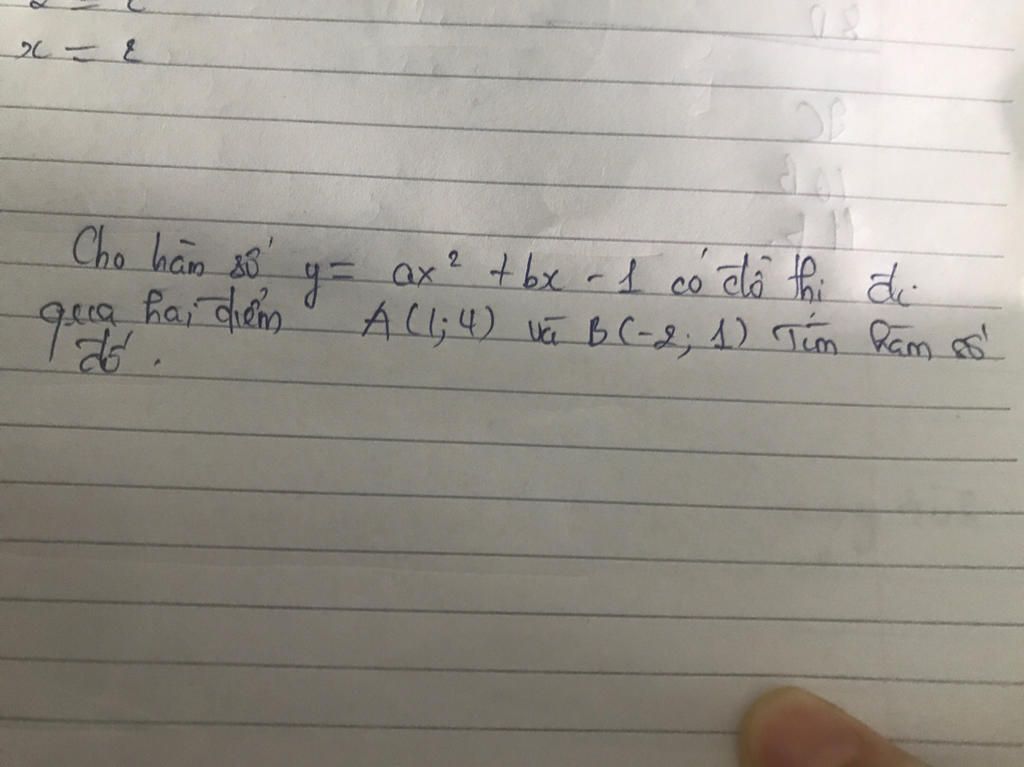 x = 2
Cho hàm số y = ax² + bx - 1 có đồ thị đi
qua hai điểm A(1;4) và B(-2; 1) Tìm hàm số
đó.